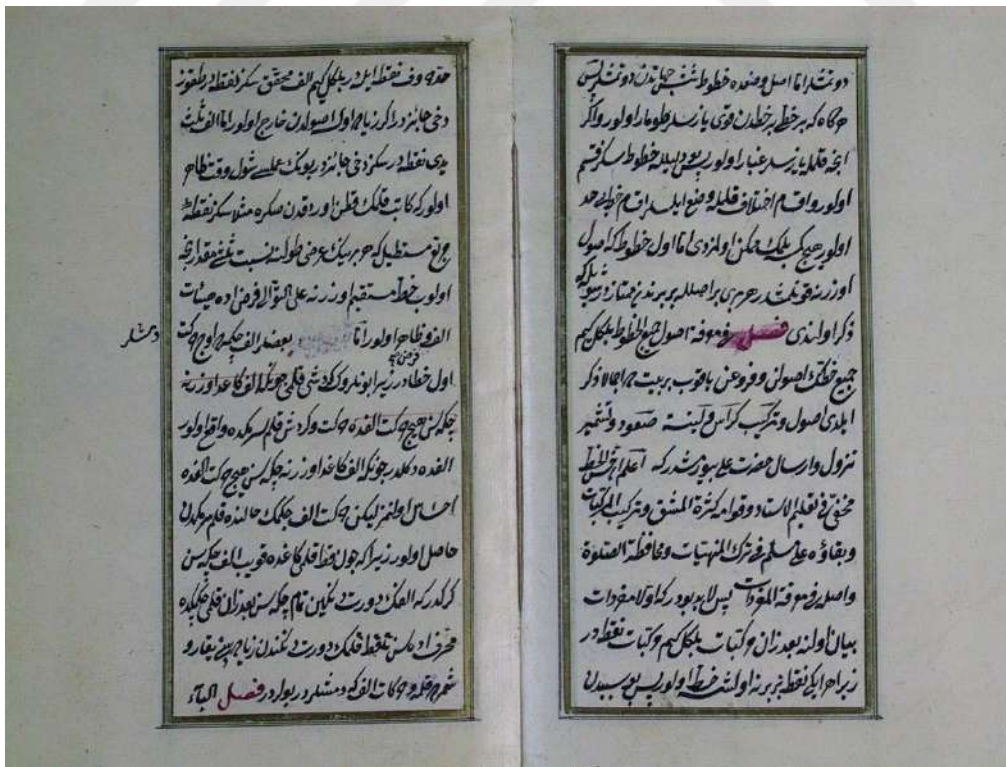 دونمشلر اما اصل وضعده خطوط شش جهاتدن دونمشلر پس
هرگاه که بر خطی بر خطدن قوی یازسه‌لر طومار اولور و اگر
انجه قلمله یازسه‌لر غبار اولور پس بودلیله خطوط سکز قسم
اولور و اقسام اختلاف قلمله وضع ایلسه‌لر اقسام خطی حد
اولور هیچ کس بلمک ممکن اولمزدی اما اول خطوط که اصول
اوزرنه قونلمشدر هر بری بر اصلله بربرندن ممتازدر شویله که
ذکر اولندی فصل فی معرفة اصول جمیع الخطوط بلکل کیم
جمیع خطک اصولن و فروعن یاقوت بر بیت اجمالا ذکر
ایلدی اصول و ترکیب کراس و نسبة صعود و تشمیر
نزول و ارسال حضرت علی بیورمشدر که اعلم ان الخط
مخفی فی تعلیم الاستاد و قوامه کثرة المشق و ترکیب المرکبات
و بقاؤه علی مسلم فی ترک المنهیات و محافظة الصلوة
و اصله فی معرفة المفردات پس لابد بودر که اولا مفردات
بیان اولنه بعد زان مرکبات بلکل کیم مرکبات نقطه در
زیرا هر ایکی نقطه بربرنه اولشه خط اولور پس بو سبیدن
حروف نقطه ایله در بلکل کیم الف محقق سکز نقطه در طقوز
دخی جائزدر اکر زیاده اولسه اصولدن خارج اولور اما الف ثلث
یدی نقطه در سکز دخی جائزدر بونک عملی شول وقت ظاهر
اولور که کاتب قلمک قطن اوردقدن صکره مثلا سکز نقطه
مربع مستطیل که هر برینک عرضی طولنه نسبت ثلثی مقدارنجه
اولوب خط مستقیم اوزرنه علی التوالی فرض ایده هیئات
الف ظاهر اولور اما بعضلر الف چکمه اوچ حرکت
دمشلر
فرضی
اول خطادر زیرا بو ندروکه کردشی قلمی چونکه الف کاغد اوزرنه
چکه‌سن هیچ حرکت الفده حرکت و کردش قلم سرمکده واقع اولور
الفده دکلدر چونکه الف کاغد اوزرنه چکه‌سن هیچ حرکت الفده
احساس اولنمز لیکن حرکت الف چکمک حالنده قلم سرمکدن
حاصل اولور زیرا که چون قط قلمی کاغده قویب الف چکه‌سن
کرکدر که الفک دورت دنکین تمام چکه‌سن بعد زان قلمی چکیکده
محرف ایده‌سن تا قط قلمک دورت دنکندن زیاده یقارو
شمره قلمه حرکات الف که دمشلردر بولدر فصل الباء